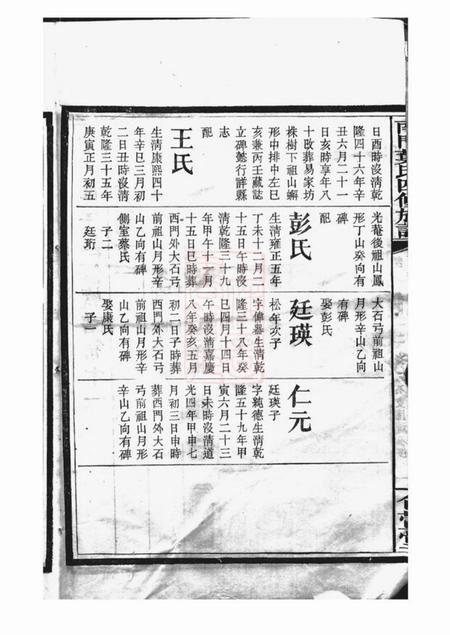 日酉時沒清乾
隆四十六年辛
丑六月二十一
日亥時享年八
十改葬易家坊
株樹下祖山蝌
形中排中左巳
亥兼丙壬藏誌
立碑懿行詳縣
志
配
王氏
生清康熙四十
年辛巳三月初
二日丑時沒清
乾隆三十五年
庚寅正月初五
光菴後祖山鳳
形丁山癸向有
碑
配
彭氏
生清雍正五年
丁未十二月二
十五日午時沒
清乾隆三十九
年甲午十一月
十五日巳時葬
西門外大石弓
前祖山月形辛
山乙向有碑
側室蔡氏
子二
廷珩
大石弓前祖山
月形辛山乙向
有碑
娶彭氏
廷瑛
松年次子
字傅巖生清乾
隆三十八年癸
巳四月十四日
午時沒清嘉慶
八年癸亥五月
初二日子時葬
西門外大石弓
前祖山月形辛
山乙向有碑
娶康氏
子一
仁元
廷瑛子
字純德生清乾
隆五十九年甲
寅六月二十三
日未時沒清道
光四年甲申七
月初三日申時
葬西門外大石
弓前祖山月形
辛山乙向有碑